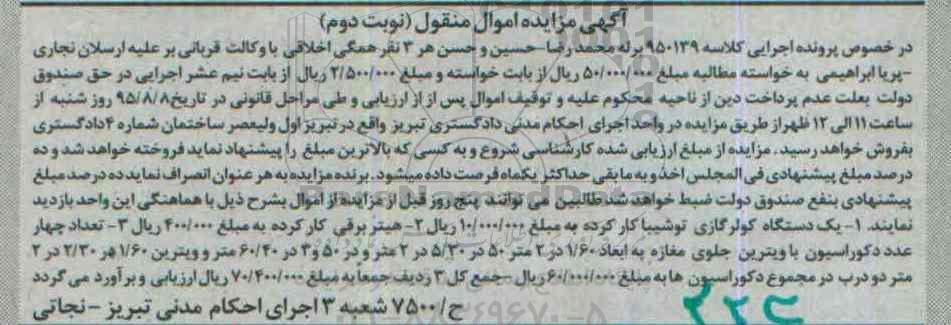 آگهی مزایده اموال منقول (نوبت دوم)
در خصوص پرونده اجرایی کلاسه ۹۵۰۱۳۹ بر له محمدرضا-حسین و حسن هر ۳ نفر همگی اخلاقی با وکالت قربانی بر علیه ارسلان نجاری
-پریا ابراهیمی به خواسته مطالبه مبلغ ۵۰/۰۰۰/۰۰۰ ریال از بابت خواسته و مبلغ ۲/۵۰۰/۰۰۰ ریال از بابت نیم عشر اجرایی در حق صندوق
دولت بعلت عدم پرداخت دین از ناحیه محکوم علیه و توقیف اموال پس از از ارزیابی و طی مراحل قانونی در تاریخ ۹۵/۸/۸ روز شنبه از
ساعت ۱۱ الی ۱۲ ظهر از طریق مزایده در واحد اجرای احکام مدنی دادگستری تبریز واقع در تبریز اول ولیعصر ساختمان شماره ۴ دادگستری
بفروش خواهد رسید. مزایده از مبلغ ارزیابی شده کارشناسی شروع و به کسی که بالاترین مبلغ را پیشنهاد نماید فروخته خواهد شد و ده
درصد مبلغ پیشنهادی فی المجلس اخذ و به مابقی حداکثر یکماه فرصت داده میشود. برنده مزایده به هر عنوان انصراف نماید ده درصد مبلغ
پیشنهادی بنفع صندوق دولت ضبط خواهد شد طالبین می توانند پنج روز قبل از مزایده از اموال بشرح ذیل با هماهنگی این واحد بازدید
نمایند. ۱- یک دستگاه کولر گازی توشیبا کار کرده به مبلغ ۱۰/۰۰۰/۰۰۰ ریال ۲- هیتر برقی کار کرده به مبلغ ۴۰۰/۰۰۰ ریال ۳- تعداد چهار
عدد دکوراسیون با ویترین جلوی مغازه به ابعاد ۱/۶۰ در ۲ متر ۵۰ در ۵/۳۰ در ۲ متر و در ۵۰ و ۲ در ۶۰/۴۰ متر و ویترین ۱/۶۰ در ۲/۳۰ در ۲
متر دو درب در مجموع دکوراسیون ها به مبلغ ۶۰/۰۰۰/۰۰۰ ریال -جمع کل ۳ ردیف جمعا به مبلغ ۷۰/۴۰۰/۰۰۰ ریال ارزیابی و برآورد می گردد
ح/۷۵۰۰ شعبه ۳ اجرای احکام مدنی تبریز - نجاتی